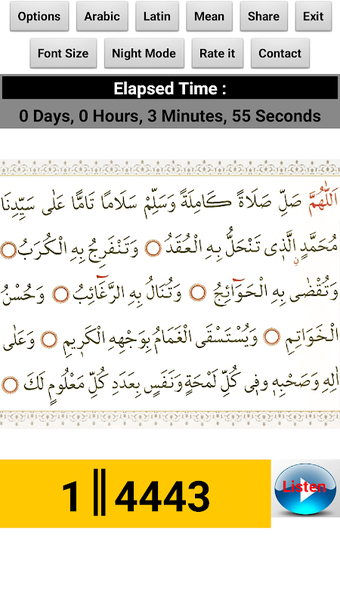 Options Arabic Latin Mean Share Exit
Font Size Night Mode Rate it Contact
Elapsed Time :
0 Days, 0 Hours, 3 Minutes, 55 Seconds
اَللّٰهُمَّ صَلِّ صَلَاةً كَامِلَةً وَسَلِّمْ سَلَامًا تَامًّا عَلٰى سَيِّدِنَا
مُحَمَّدٍ الَّذِي تَنْحَلُّ بِهِ الْعُقَدُ وَتَنْفَرِجُ بِهِ الْكُرَبُ
وَتُقْضٰى بِهِ الْحَوَٓائِجُ وَتُنَالُ بِهِ الرَّغَٓائِبُ وَحُسْنُ
الْخَوَاتِمِ وَيُسْتَسْقَى الْغَمَامُ بِوَجْهِهِ الْكَرِيمِ وَعَلٰى
اٰلِهِ وَصَحْبِهِ فِي كُلِّ لَمْحَةٍ وَنَفَسٍ بِعَدَدِ كُلِّ مَعْلُومٍ لَكَ
1 || 4443
Listen